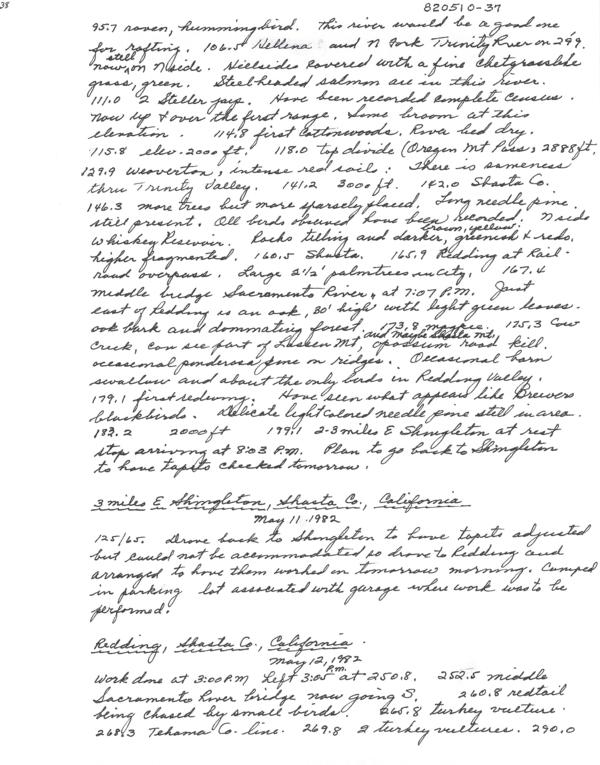 38
820510-37
95.7 raven, hummingbird. This river would be a good one
for rafting. 106.5 Hellena and N Fork Trinity River on 299.
now, still on N side. Hillsides covered with a fine Chetgrasslike
grass, green. Steelheaded salmon are in this river.
111.0 2 Steller jays. Have been recorded complete census.
Now up & over the first range. Some broom at this
elevation. 114.8 first Cottonwoods. River bed dry.
115.8 elev. 2000 ft. 118.0 top divide (Oregon Mt Pass, 2888 ft.
129.9 Weaverton, intense red soils: There is sameness
thru Trinity Valley. 141.2 3000 ft. 142.0 Shasta Co.
146.3 more trees but more sparsely placed. Long needle pine
still present. All birds observed have been recorded. N side
Whiskey Resevoir. Rocks tilling and darker, brown, yellow, greenish & reds,
higher fragmented. 160.5 Shasta. 165.9 Redding at Rail-
road overpass. Large 2 1/2' palmtrees in city. 167.4
middle bridge Sacramento River, at 7:07 P.M. Just
east of Redding is an oak, 30' high with light green leaves.
oak bark and dommating forest. 173.8 magpie. 175.3 Cow
Creek, can see part of Lassen Mt, and maybe Shasta Mt, opossum road kill.
occasional ponderosa pine on ridges. Occasional barn
swallow and about the only birds in Redding Valley.
179.1 first redwing. Have seen what appear like Brewers
blackbirds. Delicate light colored needle pine still in area.
182.2 2000 ft 199.1 2-3 miles E Shingleton at rest
stop arriving at 8:03 P.M. Plan to go back to Shingleton
to have tapits checked tomorrow.
3 miles E Shingleton, Shasta Co., California
May 11, 1982
125/65. Drove back to Shingleton to have tapits adjusted
but could not be accommodated so drove to Redding and
arranged to have them worked on tomorrow morning. Camped
in parking lot associated with garage where work was to be
performed.
Redding, Shasta Co., California.
May 12, 1982
Work done at 3:00 P.M Left 3:05 P.m. at 250.8. 252.5 middle
Sacramento River bridge now going S. 260.8 redtail
being chased by small birds. 265.8 turkey vulture.
268.3 Tehama Co. line. 269.8 2 turkey vultures. 290.0